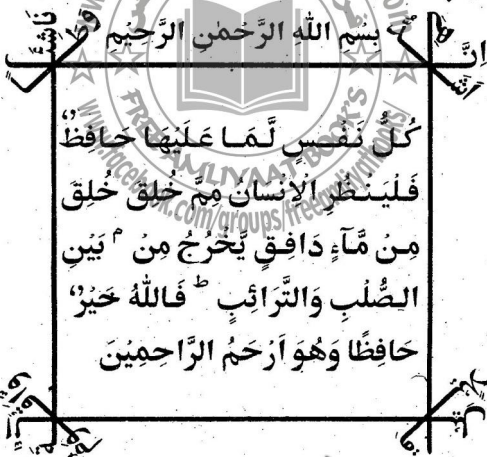 اِنَّ
بِسْمِ اللهِ الرَّحْمٰنِ الرَّحِيْمِ
كُلُّ نَفْسٍ لَّمَا عَلَيْهَا حَافِظٌ
فَلْيَنْظُرِ الْاِنْسَانُ مِمَّ خُلِقَ خُلِقَ
مِنْ مَّآءٍ دَافِقٍ يَّخْرُجُ مِنْ ۢ بَيْنِ
الصُّلْبِ وَالتَّرَائِبِ ؕ فَاللهُ خَيْرٌ
حَافِظًا وَهُوَ اَرْحَمُ الرَّاحِمِيْنَ
FREE AMLIYAAT BOOKS
www.facebook.com/groups/freeamliyatbooks